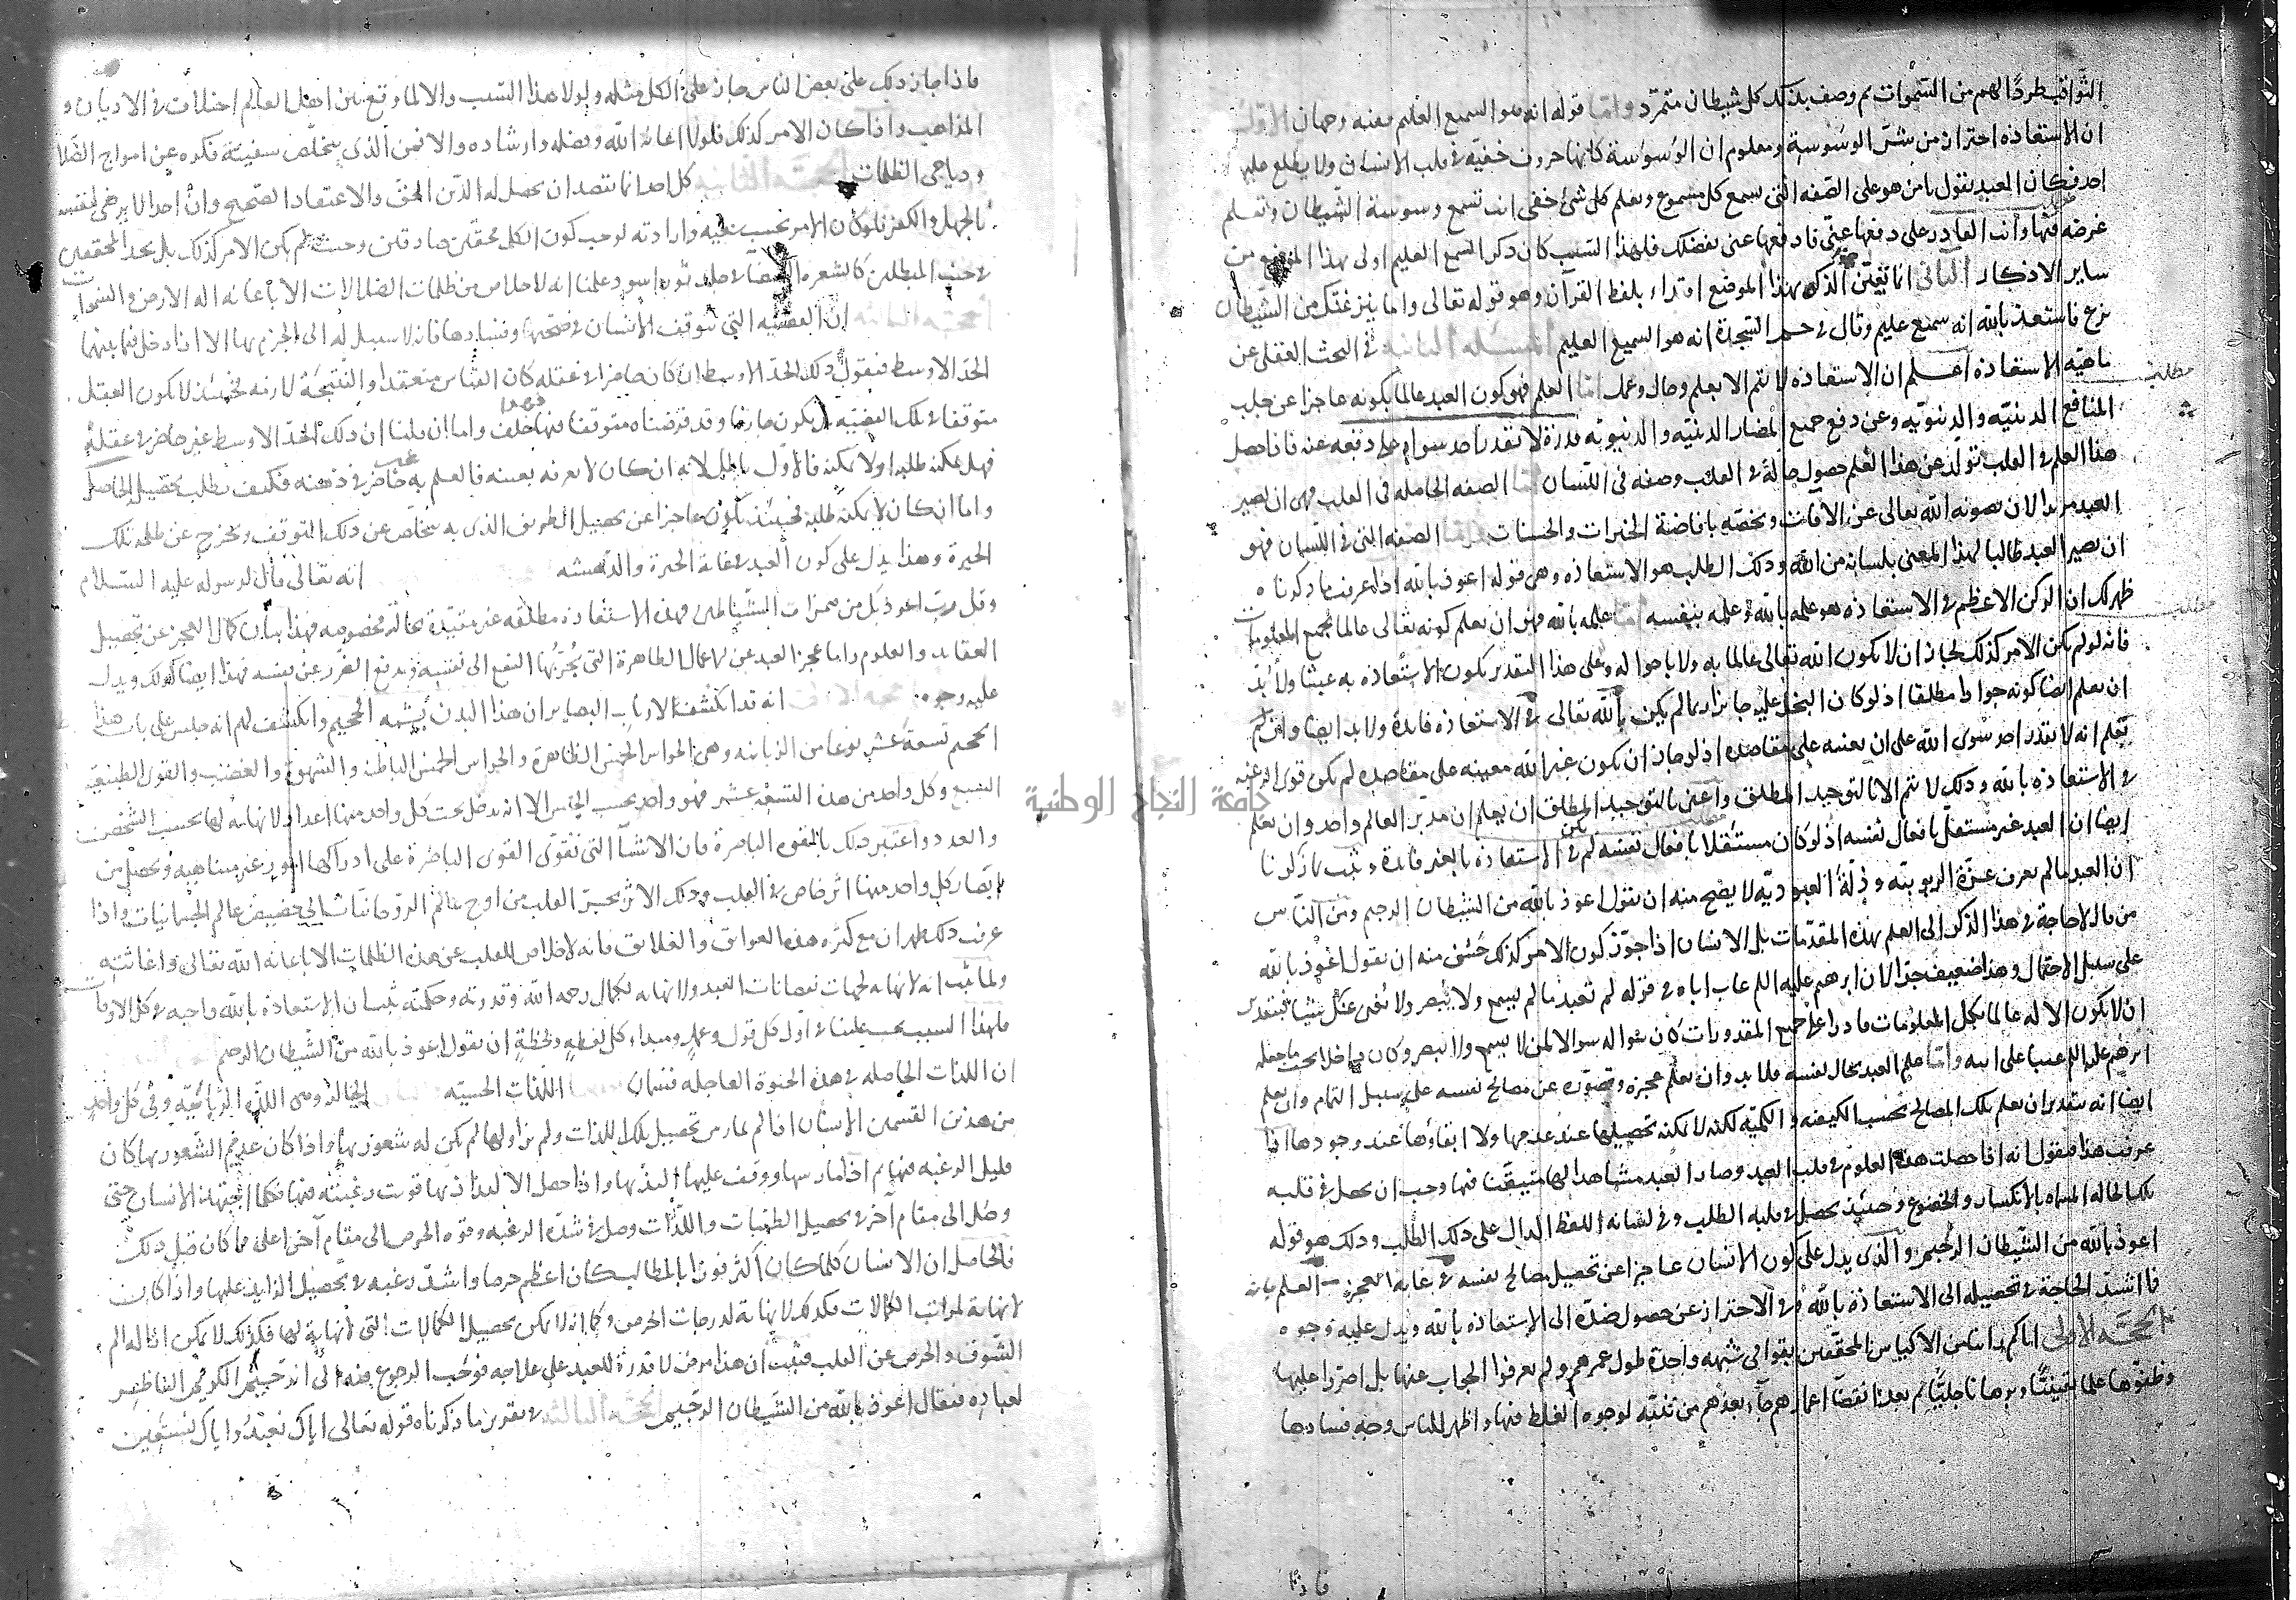 الثواقب طردًا لهم من السموات ثم وصف بذلك كل شيطان متمرد واما قوله انه هو السميع العليم ففيه وجهان الاول
ان الاستعاذه احتراز من شر الوسوسة ومعلوم ان الوسوسة كانها حروف خفيه في قلب الانسان ولا يطلع عليها
احد فكان العبد يقول يا من هو على الصفه التي يسمع كل مسموع ويعلم كل شئ خفي انت تسمع وسوسة الشيطان وتعلم
غرضه فيها وانت القادر على دفعها عنى فادفعها عنى بفضلك فلهذا السبب كان ذكر السميع العليم اولى بهذا الموضع من
ساير الاذكار الثانى انما تعين الذكر بهذا الموضع اقتداء بلفظ القرآن وهو قوله تعالى واما ينزغنك من الشيطان
نزغ فاستعذ بالله انه سميع عليم وقال في حم السجدة انه هو السميع العليم المسئله الثانية في البحث العقلى عن
ماهية الاستعاذة اعلم ان الاستعاذه لا تتم الا بعلم وحال وعمل اما العلم فهو كون العبد عالما بكونه عاجزا عن جلب
مطلب
المنافع الدينيه والدنيويه وعن دفع جميع المضار الدينيه والدنيويه قدرة لا يقدر احد سواه على دفعه عنه فاذا حصل
هذا العلم في القلب تولد عن هذا العلم حصول حالة في القلب وصفه في اللسان اما الصفه الحاصله في القلب فهى ان يصير
العبد مريدا لان يصونه الله تعالى عن الافات ويخصه بافاضة الخيرات والحسنات واما الصفه التى في اللسان فهو
ان يصير العبد طالبا لهذا المعنى بلسانه من الله وذلك الطلب هو الاستعاذه وهى قوله اعوذ بالله اذا عرفت ما ذكرناه
ظهر لك ان الركن الاعظم في الاستعاذه هو علمه بالله وعلمه بنفسه اما علمه بالله فهو ان يعلم كونه تعالى عالما بجميع المعلومات
مطلب
فانه لو لم يكن الامر كذلك لجاز ان لا يكون الله تعالى عالما به ولا باحواله وعلى هذا التقدير يكون الاستعاذه به عبثا ولا بد
ان يعلم ايضا كونه جوادا مطلقا اذ لو كان البخل عليه جايزا لم يكن بالله تعالى في الاستعاذه فايدة ولابد ايضا وان
يعلم انه لا يقدر احد سوى الله على ان يعينه على مقاصده اذ لو جاز ان يكون غير الله معينه على مقاصده لم يكن قوى الرغبه
في الاستعاذه بالله وذلك لا يتم الا بالتوحيد المطلق واعنى بالتوحيد المطلق ان يعلم ان مدبر العالم واحد وان يعلم
ايضا ان العبد غير مستقل بافعال نفسه اذ لو كان مستقلا بافعال نفسه لم في الاستعاذه بالغير فايدة وثبت بما ذكرنا
ان العبد ما لم يعرف عزة الربوبيه وذلة العبوديه لا يصح منه ان يقول اعوذ بالله من الشيطان الرجيم ومن الناس
من قال لا حاجة في هذا الذكر الى العلم بهذه المقدمات بل الانسان اذا جوز كون الامر كذلك حسن منه ان يقول اعوذ بالله
على سبيل الاحتمال وهذا ضعيف جدا لان ابرهيم عليه اللم عاب اباه في قوله لم تعبد ما لم يسمع ولا يبصر ولا يغنى عنك شيئا فبتقدير
ان لا يكون الاله عالما بكل المعلومات قادرا على جميع المقدورات كان سواله سوالا لمن لا يسمع ولا يبصر وكان داخلا تحت ما جعله
ابرهيم عليه اللم عيبا على ابيه واما علم العبد بحال نفسه فلا بد وان يعلم عجزه وقصوره عن مصالح نفسه على سبيل التمام وان يعلم
ايضا انه بتقدير ان يعلم تلك المصالح بحسب الكيفيه والكميه لكنه لا يمكنه تحصيلها عند عدمها ولا ابقاؤها عند وجودها اذا
عرفت هذا فنقول انه اذا حصلت هذه العلوم في قلب العبد وصار العبد مشاهدا لها متيقنا فيها وجب ان يحصل في قلبه
تلك الحاله المسماه بالانكسار والخضوع وحينئذ يحصل في قلبه الطلب وفي لسانه اللفظ الدال على ذلك الطلب وذلك هو قوله
اعوذ بالله من الشيطان الرجيم والذى يدل على كون الانسان عاجزا عن تحصيل مصالح نفسه في غاية العجز العلم بانه
فاشد الحاجة في تحصيله الى الاستعاذة بالله وفي الاحتراز عن حصول ضده الى الاستعاذه بالله ويدل عليه وجوه
الحجه الاولى اناكم راينا من الاكياس المحققين بقوا في شبهه واحدة طول عمرهم ولم يعرفوا الجواب عنها بل اصروا عليها
وظنوها علما يقينيًا وبرهانا جليًا ثم بعد انقضا اعمارهم جاء بعدهم من تنبه لوجوه الغلط فيها واظهر للناس وجه فسادها
فاذا
فاذا جاز ذلك على بعض الناس جاز على الكل مثله ولولا هذا السبب والا لما وقع بين اهل العالم اختلاف في الاديان و
المذاهب واذا كان الامر كذلك فلولا اعانة الله وفضله وارشاده والا فمن الذى يتخلص سفينة فكره عن امواج الضلا
ودياجى الظلمات الحجه الثانيه كل احد انما يقصد ان يحصل له الدين الحق والاعتقاد الصحيح وان احدا لا يرضى لنفسه
بالجهل والكفر فلو كان الامر بحسب سعيه وارادته لوجب كون الكل محقين صادقين وحيث لم يكن الامر كذلك بل نجد المحققين
في جنب المبطلين كالشعره البيضا في جلد ثور اسود علمنا انه لا خلاص من ظلمات الضلالات الا باعانه اله الارض والسموات
الحجه الثالثه ان القضيه التي يتوقف الانسان في صحتها وفسادها فانه لا سبيل له الى الجزم بها الا اذا دخل فيما بينهما
الحد الاوسط فنقول ذلك الحد الاوسط ان كان حاضرا في عقله كان القياس منعقدا والنتيجة لازمه فحينئذ لا يكون العقل
متوقفا في تلك القضيه بل يكون جازما وقد فرضناه متوقفا فيها هذا خلف واما ان قلنا ان ذلك الحد الاوسط غير حاضر في عقله
فهل يمكنه طلبه او لا يمكنه فالاول باطل لانه ان كان لا يعرفه بعينه فالعلم به غير حاضر في ذهنه فكيف يطلب تحصيل الحاصل
واما ان كان لا يمكنه طلبه فحينئذ يكون عاجزا عن تحصيل الطريق الذى به يتخلص عن ذلك التوقف ويخرج عن ظلمه تلك
الحيرة وهذا يدل على كون العبد في غاية الحيرة والدهشه انه تعالى قال لرسوله عليه السلام
وقل رب اعوذ بك من همزات الشياطين فهذه الاستعاذه مطلقه غير مقيدة بحالة مخصوصه فهذا بيان كمال العجز عن تحصيل
العقايد والعلوم واما عجز العبد عن الاعمال الظاهرة التى يجر بها النفع الى نفسه ويدفع الضرر عن نفسه فهذا ايضا كذلك ويدل
عليه وجوه الحجه الاولى انه قد انكشف لارباب البصاير ان هذا البدن يشبه الجحيم وانكشف لهم انه جلس على باب هذا
الجحيم تسعة عشر نوعا من الزبانيه وهى الحواس الخمس الظاهرة والحواس الخمس الباطنه والشهوة والغضب والقوى الطبيعيه
السبع وكل واحد من هذه التسعة عشر فهو واحد بحسب الجنس الا انه يدخل تحت كل واحد منها اعداد لا نهايه لها بحسب الشخص
والعدد واعتبر ذلك بالقوه الباصرة فان الاشيآ التى تقوى القوى الباصرة على ادراكها امور غير متناهيه ويحصل من
ابصار كل واحد منها اثر خاص في القلب وذلك الاثر يجر القلب من اوج عالم الروحانيات الى حضيض عالم الجسمانيات واذا
عرفت ذلك ظهر ان مع كثره هذه العوايق والعلايق فانه لا خلاص للقلب عن هذه الظلمات الا باعانة الله تعالى واغاثته
ولما ثبت انه لا نهاية لجهات نقصانات العبد ولا نهايه لكمال رحمه الله وقدرته وحكمته ثبت ان الاستعاذه بالله واجبه في كل الاوقات
فلهذا السبب يجب علينا في اول كل قول وعمل ومبداء كل لفظه ولحظةٍ ان نقول اعوذ بالله من الشيطان الرجيم
ان اللذات الحاصله في هذه الحيوة العاجله قسمان اللذات الحسيه الخياليه وهى اللذه الرياسيه وفي كل واحد
من هذين القسمين الانسان اذا لم يمارس تحصيل تلك اللذات ولم يزاولها لم يكن له شعور بها واذا كان عديم الشعور بها كان
قليل الرغبه فيها ثم اذا مارسها ووقف عليها التذ بها واذا حصل الالتذاذ بها قويت رغبته فيها فكلما اجتهد الانسان حتى
وصل الى مقام آخر في تحصيل الطيبات واللذات وصل في شدة الرغبه وقوه الحرص الى مقام آخر اعلى مما كان قبل ذلك
فالحاصل ان الانسان كلما كان اكثر فوزا بالمطالب كان اعظم حرصا واشد رغبه في تحصيل الزايد عليها واذا كان
لا نهاية لمراتب الكمالات فكذلك لا نهايه لدرجات الحرص وكما انه لا يمكن تحصيل الكمالات التى لا نهايه لها فكذلك لا يمكن ازالة الم
الشوق والحرص عن القلب فثبت ان هذا مرض لا قدرة للعبد على علاجه فوجب الرجوع فيه الى الرحيم الكريم الناظر
لعباده فيقال اعوذ بالله من الشيطان الرجيم الحجه الثالثه في تقرير ما ذكرناه قوله تعالى اياك نعبد واياك نستعين
جامعة النجاح الوطنية